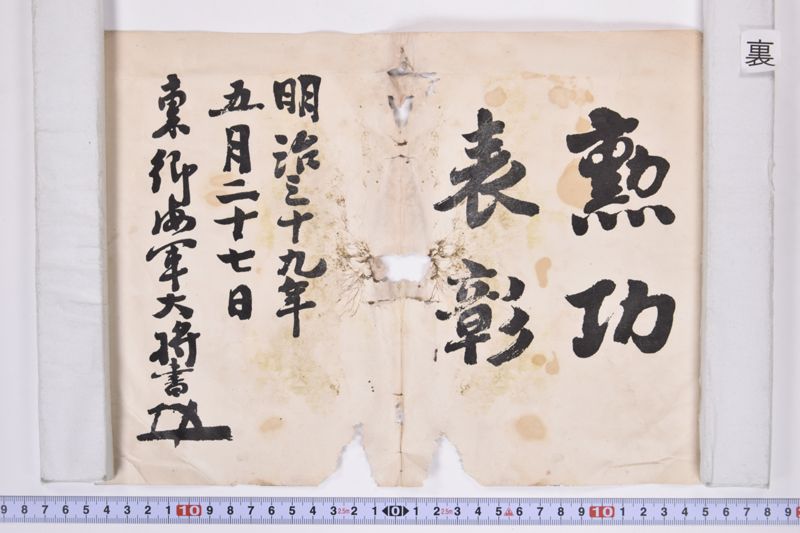 裏
勲功
表彰
明治三十九年
五月二十七日
東郷海軍大将書
9 8 7 6 5 4 3 2 1 10 9 8 7 6 5 4 3 2.5m 2 1 0 1 2 2.5m 3 4 5 6 7 8 9 10 1 2 3 4 5 6 7 8 9